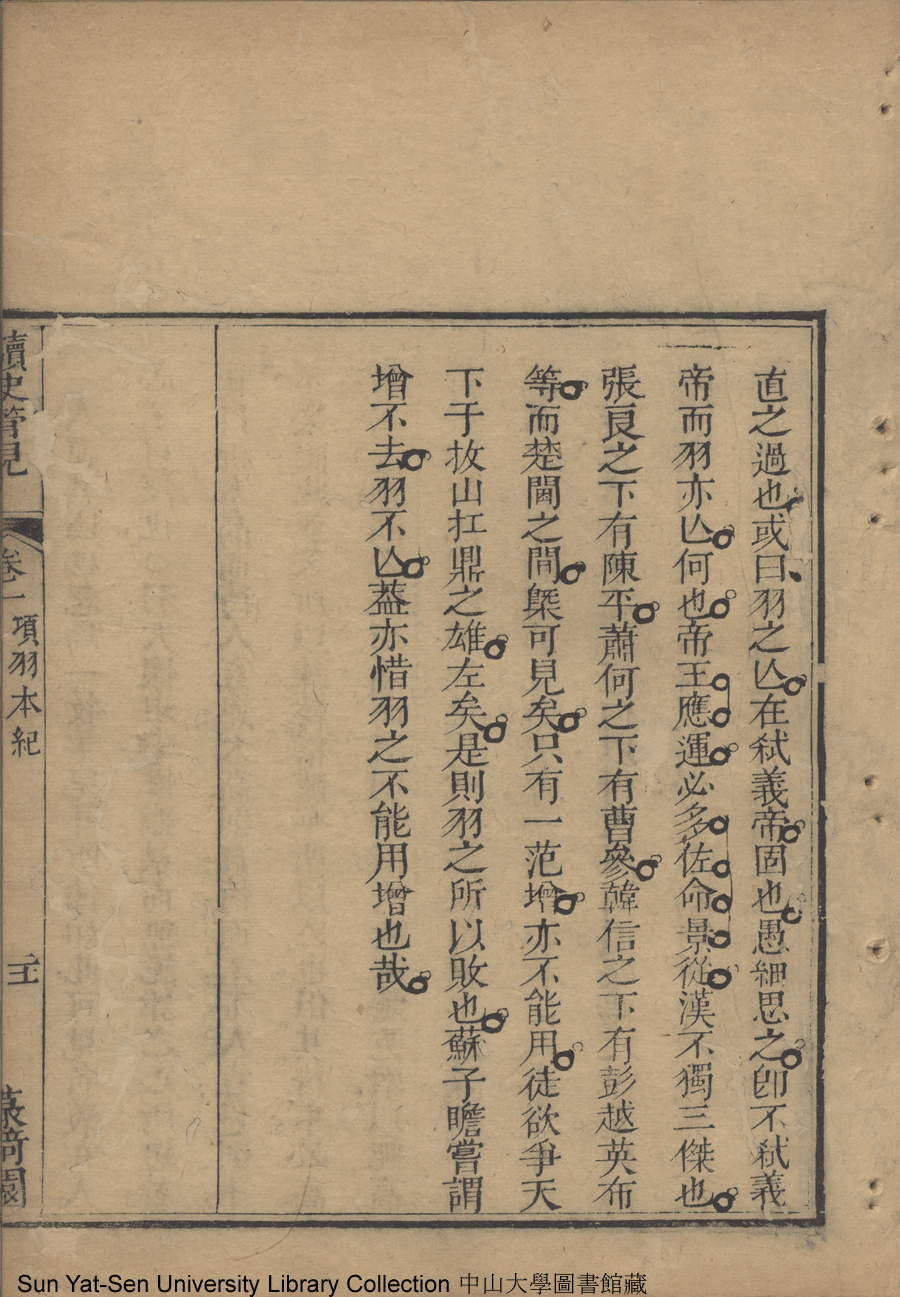 直之過也或曰羽之亾在弑義帝固也愚細思之卽不弑義
帝而羽亦亾何也帝王應運必多佐命景從漢不獨三傑也
張良之下有陳平蕭何之下有曹參韓信之下有彭越英布
等而楚閫之間槩可見矣只有一范增亦不能用徒欲爭天
下于㧞山扛鼎之雄左矣是則羽之所以敗也蘇子瞻嘗謂
增不去羽不亾葢亦惜羽之不能用增也哉
讀史管見
卷一
項羽本紀
園
Sun Yat-Sen University Library Collection 中山大學圖書館藏